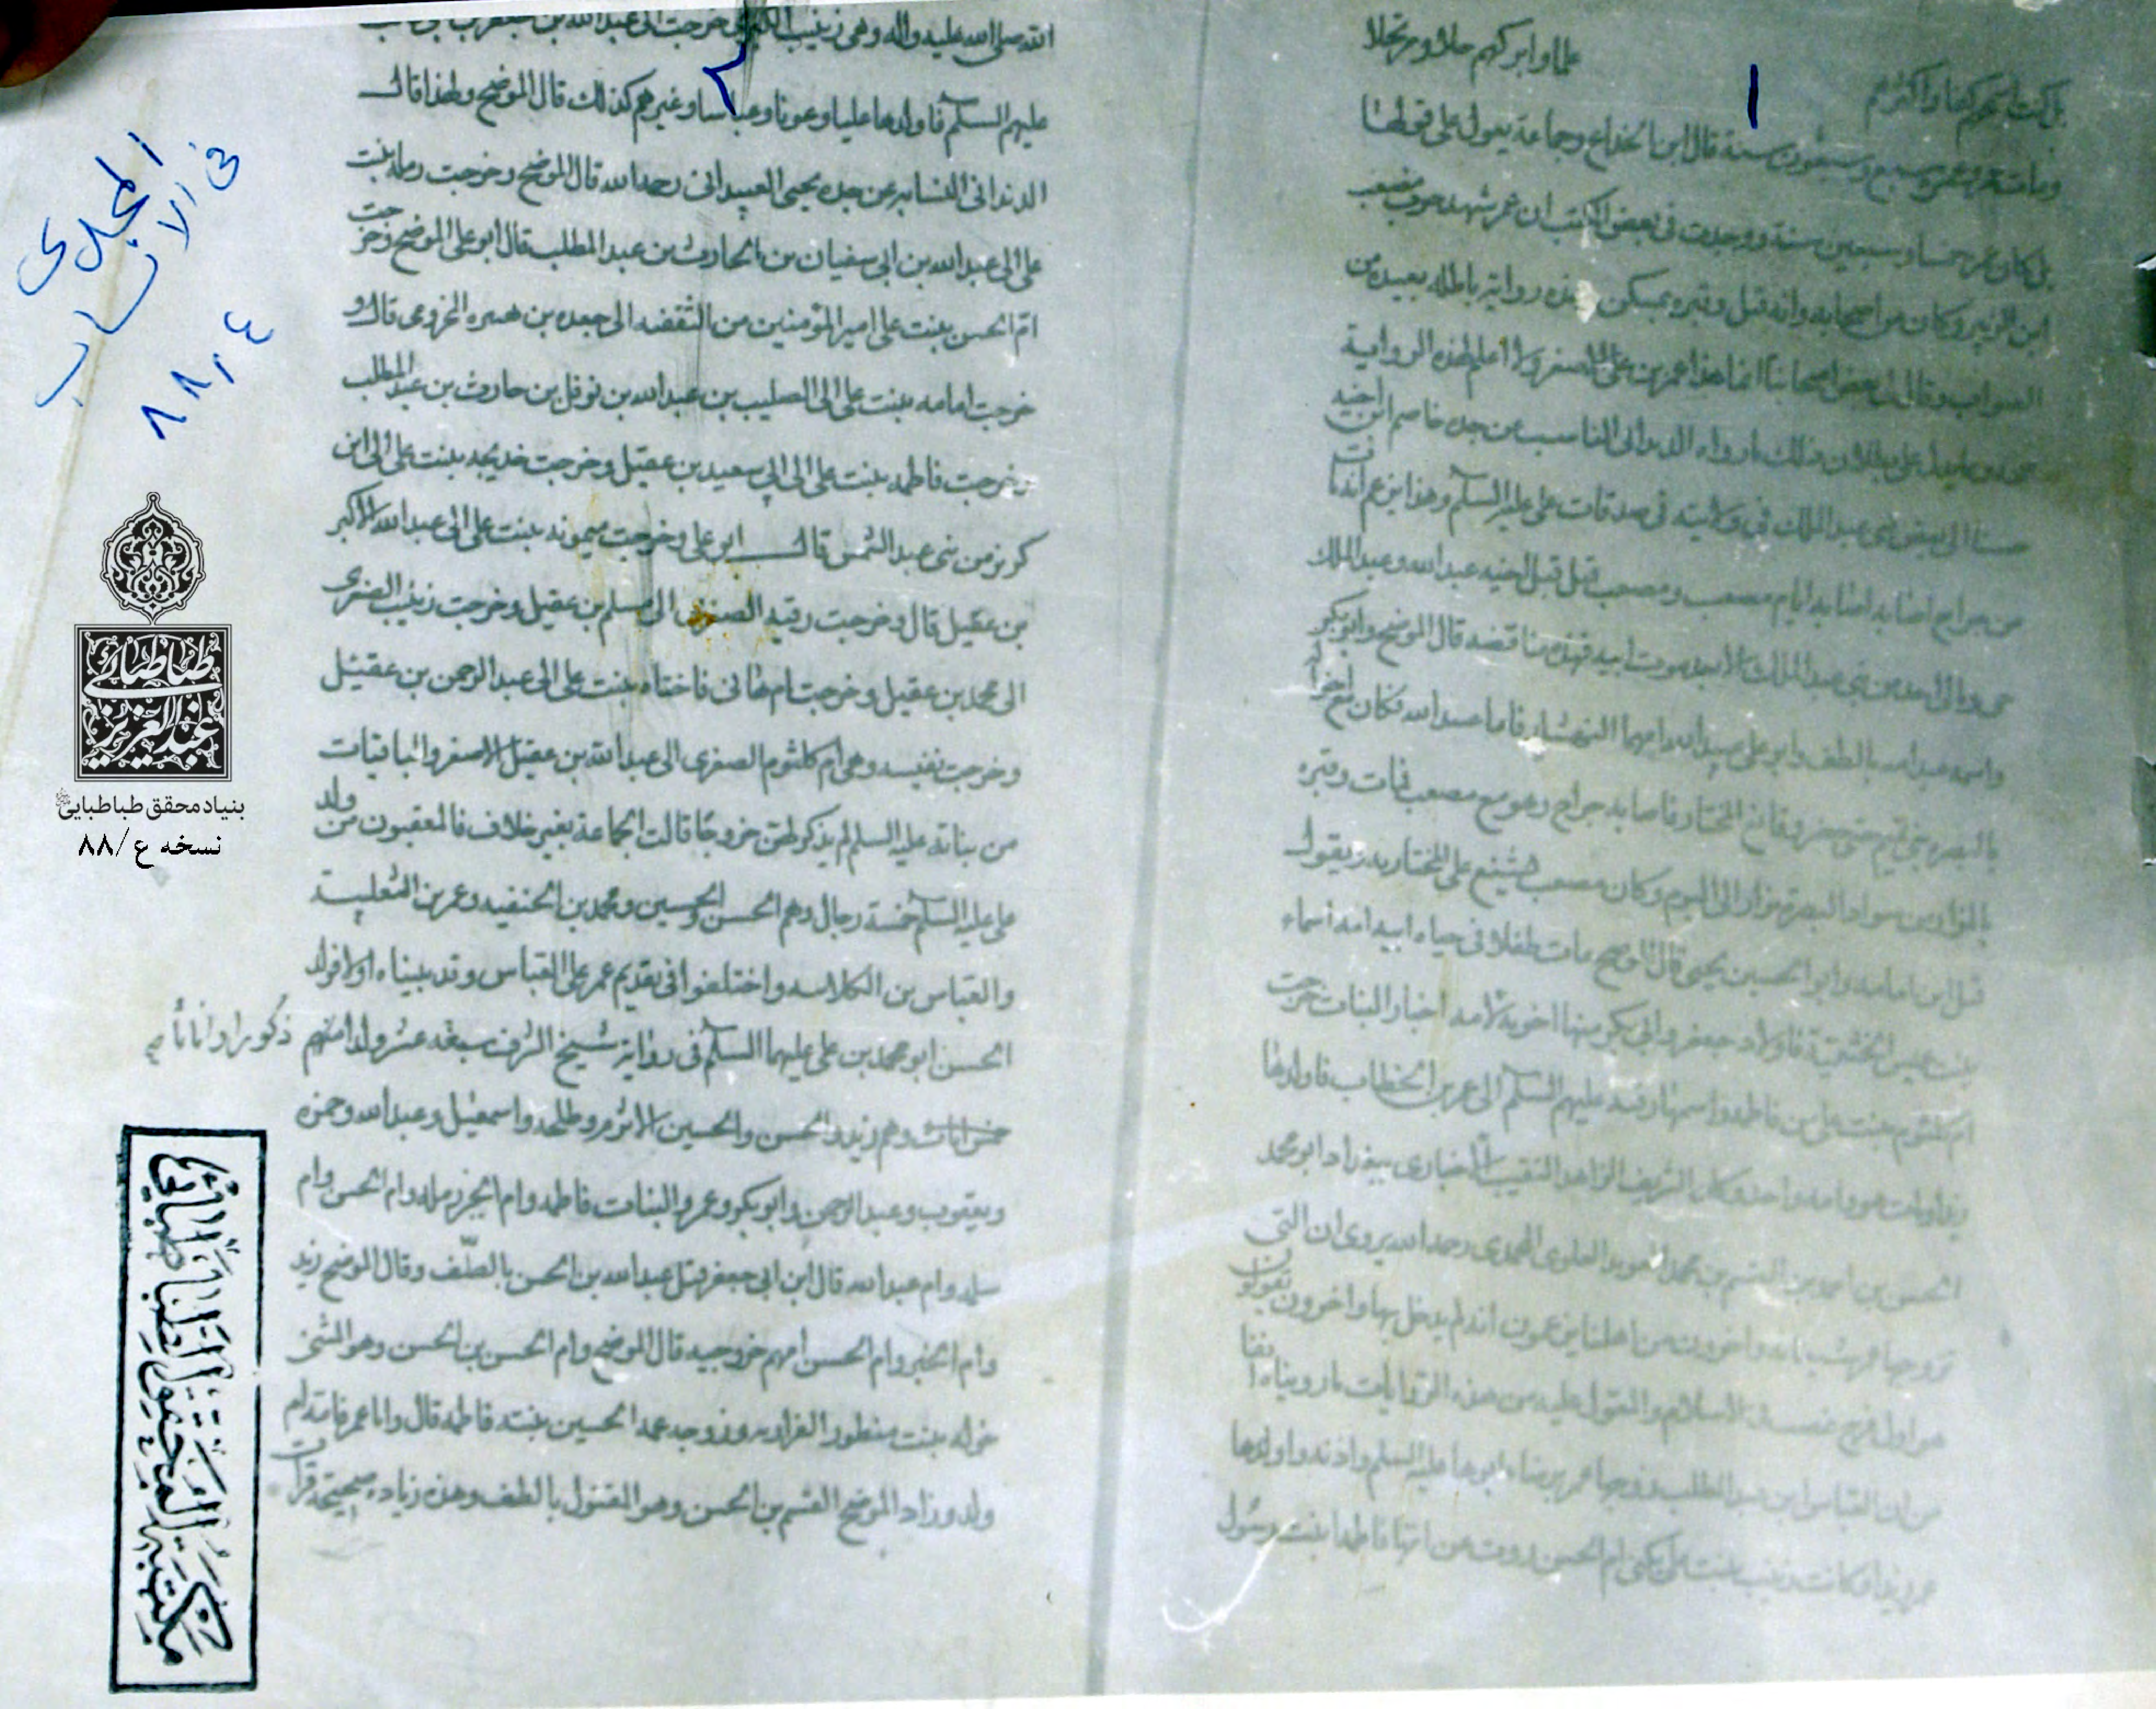 علما وابركهم حلا ومرتحلا
ومات عمر وعمره سبع وسبعون سنة قال ابن الخداع وجماعة يعول على قولها
بل كان عمره خمسا وسبعين سنة ووجدت فى بعض الكتب ان عمر شهد حرب مصعب
ابن الزبير وكان من اصحابه وانه قتل وقبره بمسكن وهذه رواية باطلة بعيدة من
الصواب وقال لى بعض اصحابنا انما هذا عمر بن على الاصغر ولا اعلم لهذه الرواية
على بطلان ذلك ما رواه الدندانى الناسب عن جده خاصم ابن اخيه
حسنا الى بعض بنى عبد الملك فى ولايته فى صدقات على عليه السلام وهذا ابن عم انه مات
من جراح اصابه ايام مصعب ومصعب قتل قبل اخيه عبد الله وعبد الملك
بنى عبد الملك الا بعد موت ابيه فهذه مناقضة قال الموضح وابو بكر
واسمه عبد الله بالطف وابو على عبيد الله وامهما النهشلية فاما عبيد الله فكان مع اخواله
بالبصرة بنى تميم حتى حضر وقائع المختار فاصابه جراح وهو مع مصعب فمات وقبره
بالمزار من سواد البصرة يزار الى اليوم وكان مصعب يشنع على المختار به ويقول
قتل ابن امامه وابو الحسين يحيى قال الموضح مات طفلا فى حياه ابيه امه اسماء
بنت عميس الخثعمية فاولاد جعفر وابى بكر منها اخوته لامه اخبار البنات خرجت
ام كلثوم بنت على من فاطمه واسمها رقيه عليهم السلام الى عمر بن الخطاب فاولدها
زيدا ومات هو وامه واحد وكان الشريف الزاهد النقيب الاخبارى ببغداد ابو محمد
الحسن بن احمد بن القسم بن محمد العويد العلوى المحمدى رحمه الله يروى ان التى
تزوجها عمر شيطانه واخرون من اهلنا يزعمون انه لم يدخل بها واخرون يقولون
هو اول فرج غصب فى الاسلام والمعول عليه من هذه الروايات ما رويناه انفا
من ان العباس ابن عبد المطلب زوجها عمر برضاء ابوها عليه السلم واذنه واولدها
عمر زيدا وكانت زينب بنت على تكنى ام الحسن روت عن امها فاطمه بنت رسول
الله صلى الله عليه واله وهى زينب الكبرى خرجت الى عبد الله بن جعفر بن ابى طالب
عليهم السلام فاولدها عليا وعونا وعباسا وغيرهم كذلك قال الموضح ولهذا قال
الدندانى النسابه عن جده يحيى العبيدانى رحمه الله قال الموضح وخرجت رمله بنت
على الى عبد الله بن ابى سفيان بن الحارث بن عبد المطلب قال ابو على الموضح وخرجت
ام الحسن بنت على امير المؤمنين من الثقفيه الى جعده بن هبيره المخزومى قال و
خرجت امامه بنت على الى الصليب بن عبد الله بن نوفل بن حارث بن عبد المطلب
وخرجت فاطمه بنت على الى ابى سعيد بن عقيل وخرجت خديجه بنت على الى ابن
كريز من بنى عبد الشمس قال ابو على وخرجت ميمونه بنت على الى عبد الله الاكبر
بن عقيل قال وخرجت رقيه الصغرى الى مسلم بن عقيل وخرجت زينب الصغرى
الى محمد بن عقيل وخرجت ام هانى فاخته بنت على الى عبد الرحمن بن عقيل
وخرجت نفيسه وهى ام كلثوم الصغرى الى عبد الله بن عقيل الاصغر والباقيات
من بناته عليه السلم لم يذكر لهن خروجا قالت الجماعة بغير خلاف فالمعقبون من ولد
على عليه السلام خمسة رجال وهم الحسن والحسين ومحمد بن الحنفيه وعمر بن الثعلبية
والعباس بن الكلابيه واختلفوا فى تقديم عمر على العباس وقد بيناه اولا فولد
الحسن ابو محمد بن على عليهما السلام فى رواية شيخ الشرف سبعة عشر ولدا منهم
ذكورا واناثا
خمس اناث وهم زيد والحسن والحسين الاثرم وطلحه واسمعيل وعبد الله وحمزه
ويعقوب وعبد الرحمن وابو بكر وعمر والبنات فاطمه وام الخير رمله وام الحسن وام
سلمه وام عبد الله قال ابن ابى جعفر قتل عبد الله بن الحسن بالطف وقال الموضح زيد
وام الخير وام الحسن امهم خزرجيه قال الموضح وام الحسن بن الحسن وهو المثنى
خوله بنت منظور الفزاريه وزوجه عمه الحسين بنته فاطمه قال واما عمر فامه ام
ولد وزاد الموضح القسم بن الحسن وهو المقتول بالطف وهذه زياده صحيحة قرات
المجدى
فى الانساب
ع ٨٨
طباطبائى
عبد العزيز
بنیاد محقق طباطبایی
نسخه ع/۸۸
مكتبة المحقق الطباطبائي
١
٢